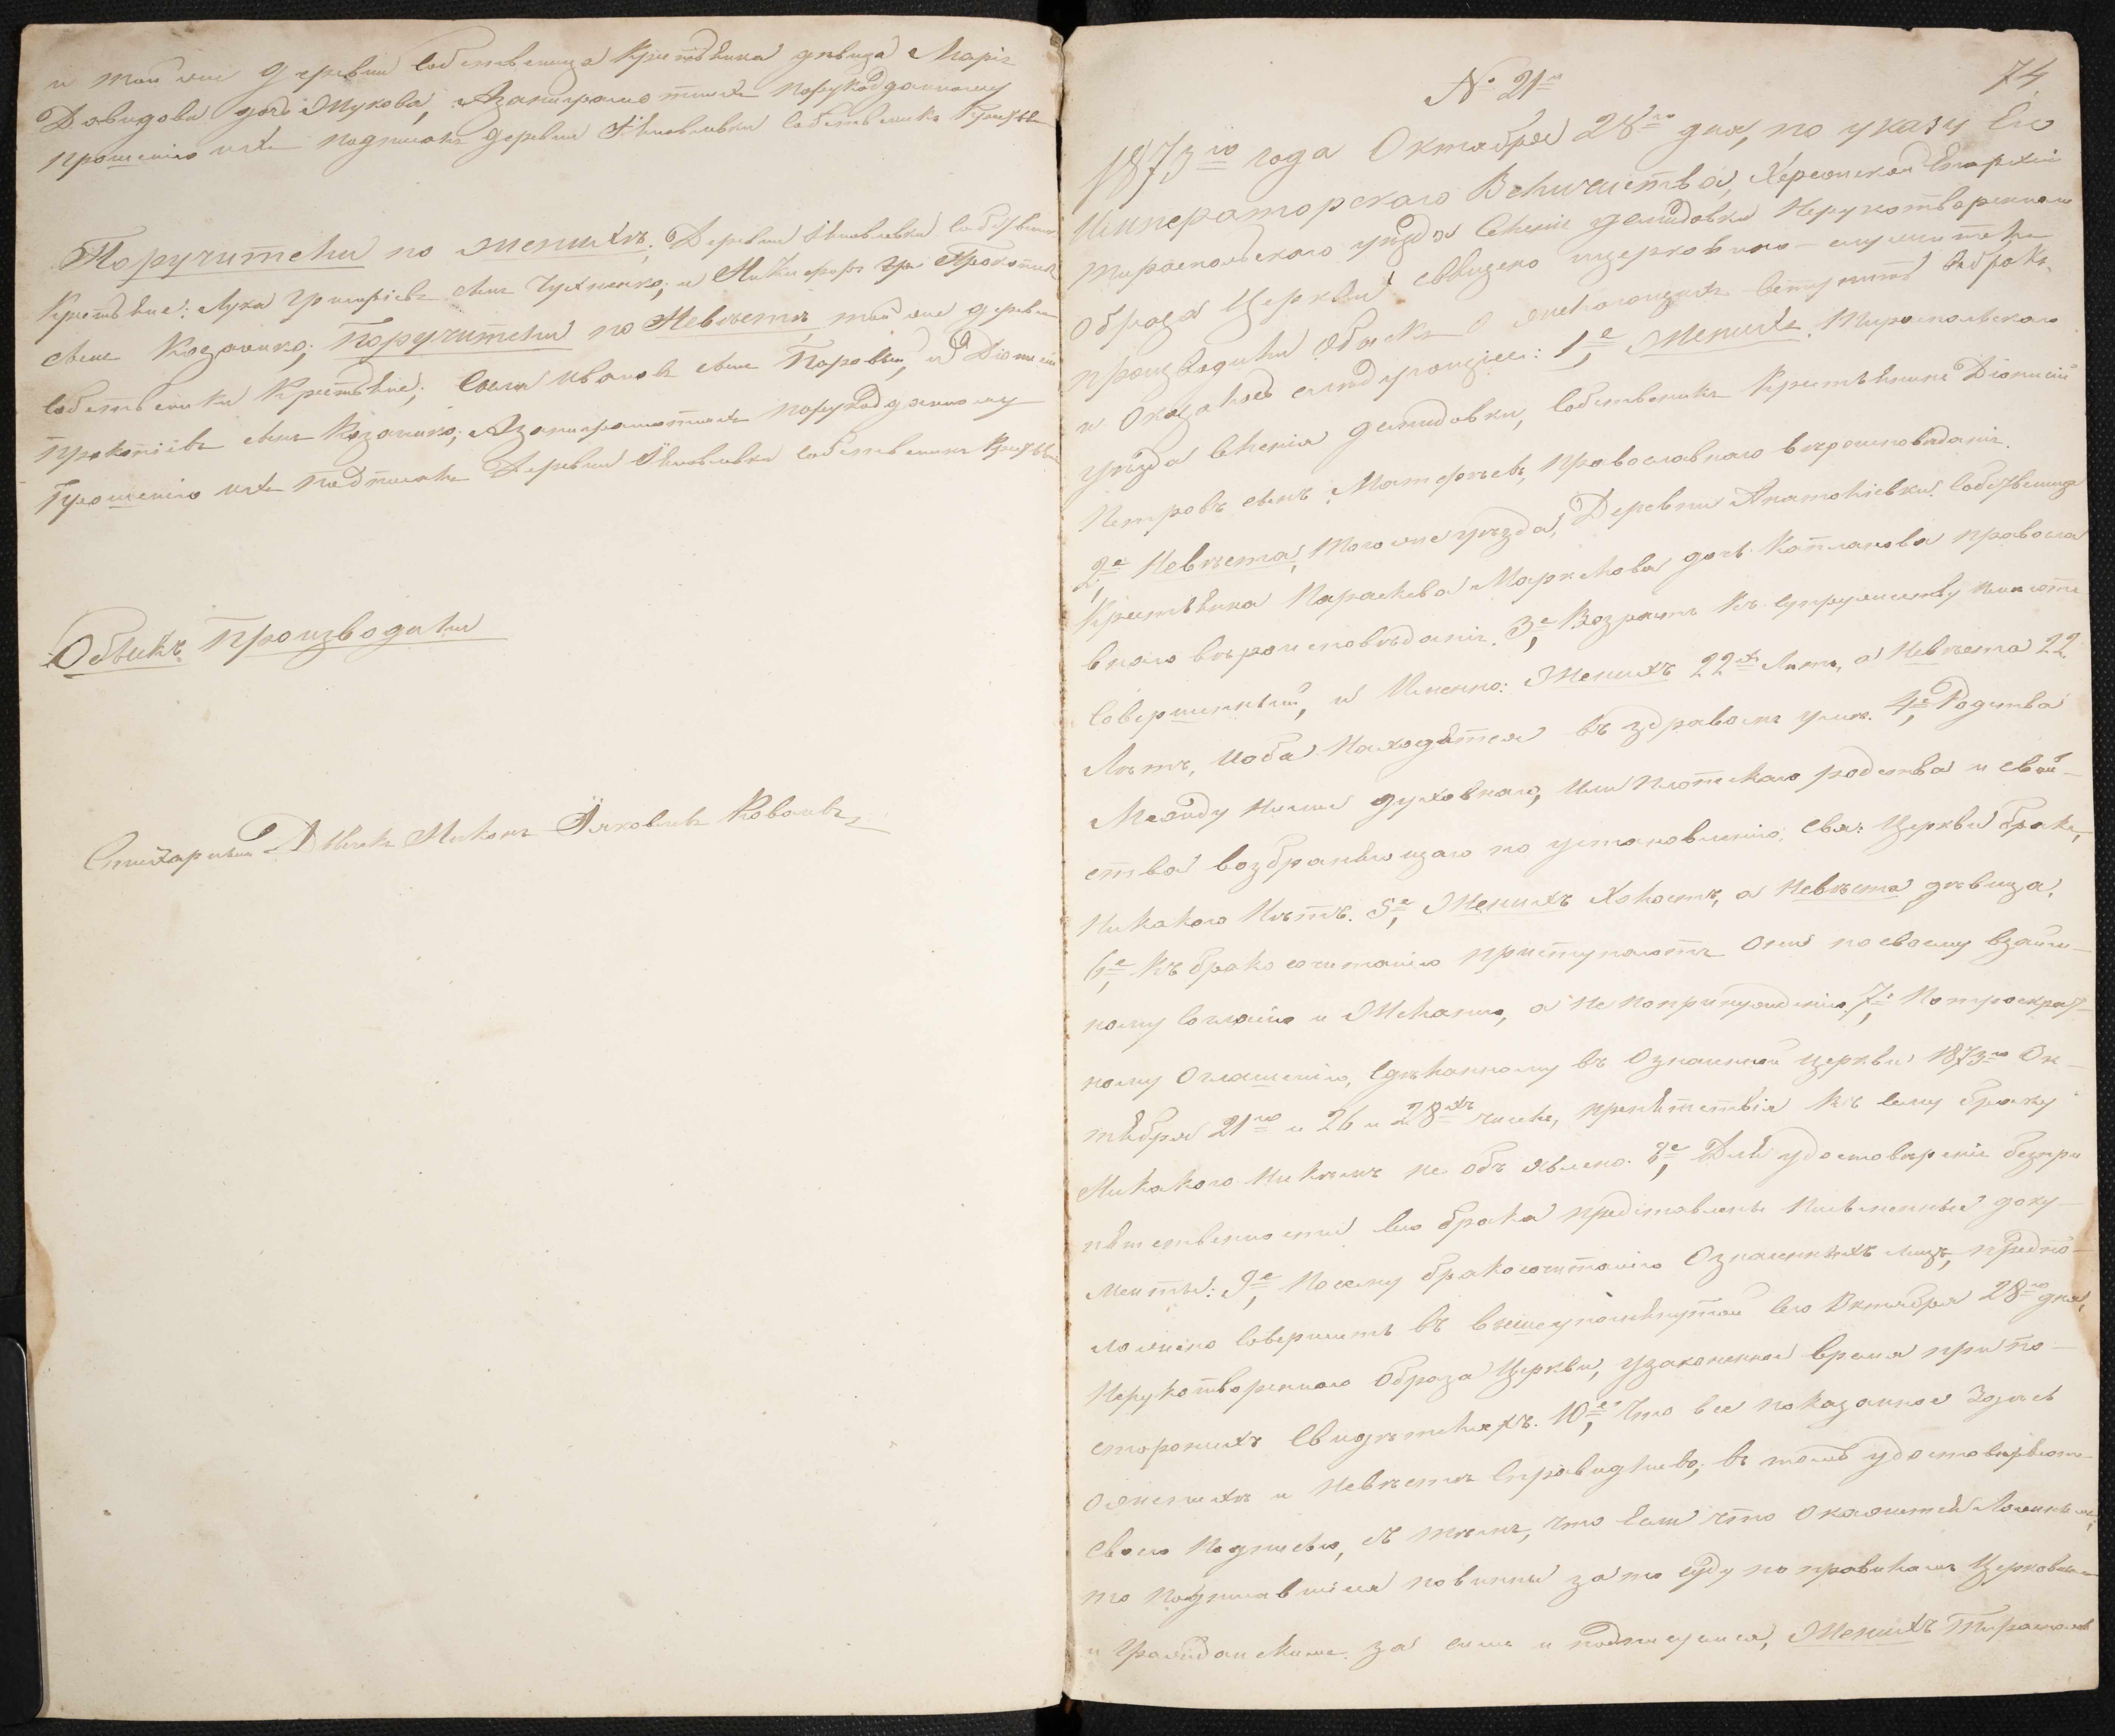 и той же деревни собственница Крестьянка девица Марiя
Давидова дочь Жукова, Азанеграмотныхъ порукоданному
прошенiю ихъ подписалъ деревни собственникъ
Поручители по женихѣ: Деревни собствен
Крестьяне: Лука Григорiевъ сынъ и Никифоръ Прокопiевъ
сынъ Козачико; Поручители по Невѣстѣ той же деревни
собственники Крестьяне; Иванов сынъ и Дiонисiй
Прокопiевъ сынъ Козачико; Азанеграмотныхъ порукоданному
Прошенiю ихъ подписалъ Деревни собственникъ
Обыскъ производили
Стихарный Дьячекъ Никонъ Яковлевъ
74
№ 21й
1873го года Октября 28го дня, по указу Его
Императорскаго Величества, Херсонской Епархiи
Тираспольскаго уѣзда Селенiя Демидовки Нерукотвореннаго
образа Церкви священо и церковно-служители
производили обыскъ о желающихъ вступить въ бракъ,
и оказалось слѣдующее: 1е, Женихъ Тираспольскаго
уѣзда Селенiя Демидовки, Собственникъ Крестьянинъ Дiонисiй
Петровъ сынъ Матфѣевъ, православнаго вѣроисповѣданiя.
2е, Невѣста, того же уѣзда, Деревни Анатолiевки собственница
Крестьянка Параскева Маркелова дочь Капланова правосла
внаго вѣроисповѣданiя. 3е, Возрастъ къ супружеству имѣютъ
совершенный, и Именно: Женихъ 22хъ лѣтъ, а Невѣста 22
Лѣтъ, иоба находятся въ здравомъ умѣ. 4е, Родства
Между ними духовнаго, или плотскаго родства и свой-
ства возбраняющаго по установленiю свя: Церкви бракъ,
никакого нѣтъ. 5е, Женихъ Холостъ, а Невѣста дѣвица.
6е, Къ бракосочитанiю приступаютъ они по своему взаим-
ному согласiю и Желанiю, а не по принужденiю. 7е, По троекрат-
ному оглашенiю, сдѣланному въ означенной церкви 1873го Ок-
тября 21го и 26 и 28хъ числъ, препятствiя къ сему браку
Никакого никѣмъ не объявлено. 8е, Для удостоверенiя безпре
пятственности сего брака представлены письменные доку-
менты: 9е, Посему бракосочитанiю означенныхъ лицъ, предпо-
ложено совершить въ вышеупомянутой сего Октября 28го дня,
Нерукотвореннаго Образа Церкви, узаконенное время при по-
стороннихъ свидѣтеляхъ. 10е, Что все показанное здѣсь
ожениху и невѣстѣ справидливо, въ томъ удостовѣряютъ
своею подписью, съ тѣмъ, что если что окажется Ложнымъ,
то подписавшiеся повинны за то суду по правиламъ Церковнымъ
и гражданскимъ. за симъ и подписуемся, Женихъ Тираспольс